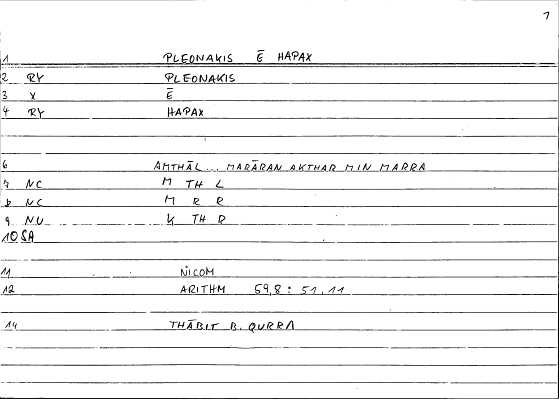 1
1 PLEONAKIS Ē HAPAX
2 RY PLEONAKIS
3 X Ē
4 RY HAPAX
6 AMTHĀL ... MARĀRAN AKTHAR MIN MARRA
7 NC M TH L
8 NC M R R
9 NU K TH R
10 SA
11 NICOM
12 ARITHM 59,8 : 51,11
14 THĀBIT B. QURRA